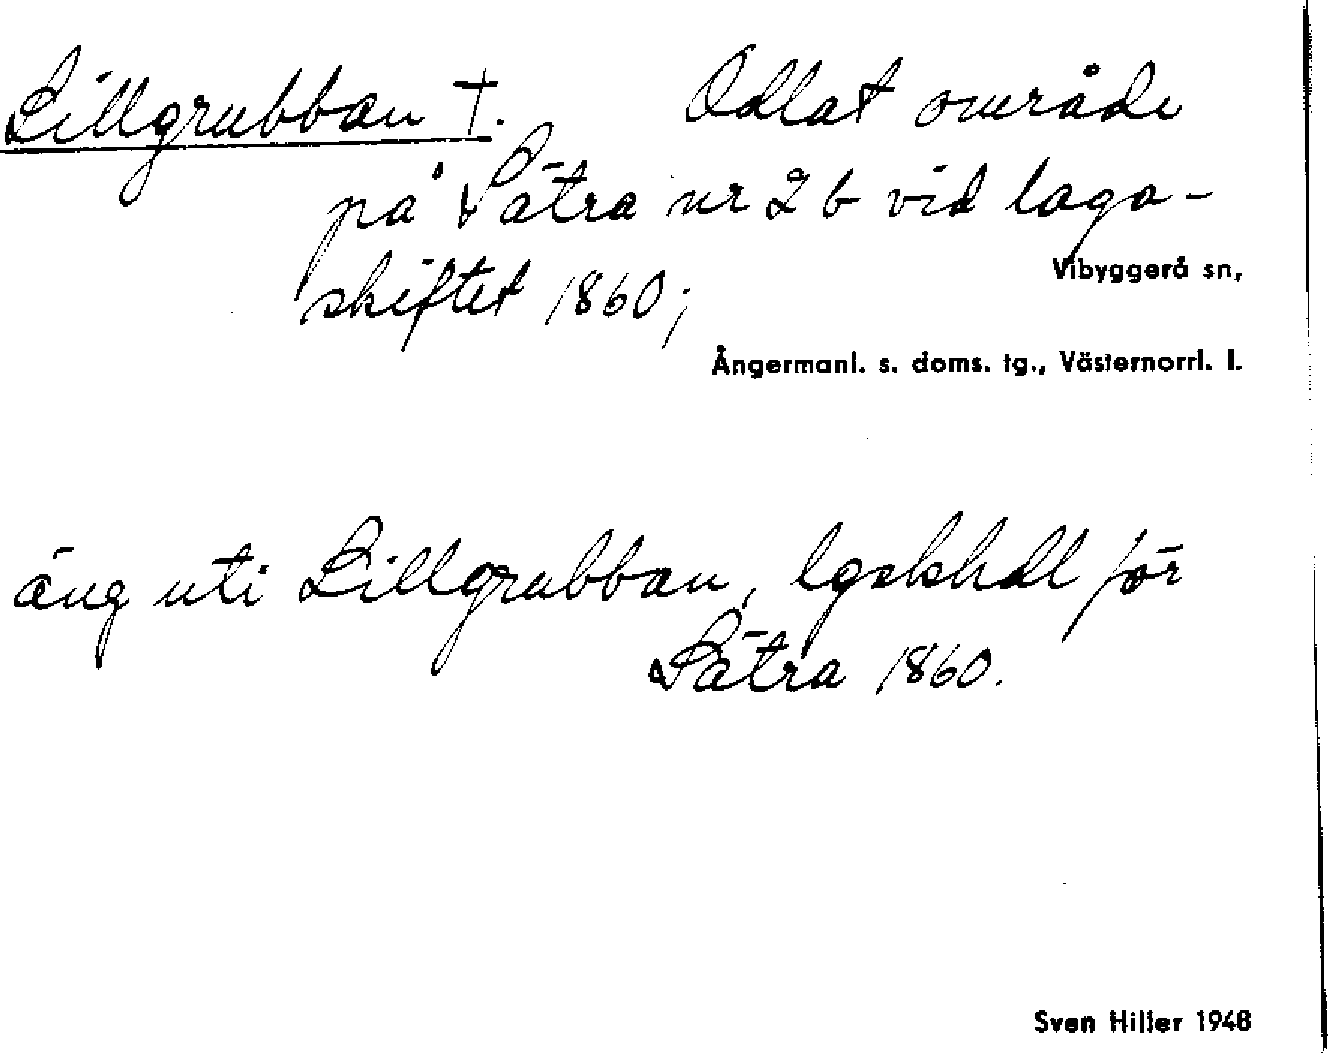 Lillgrubban †. Odlat område
på Sätra nr 2 b vid laga-
skiftet 1860;
Vibyggerå sn,
Ångermanl. s. doms. tg., Västernorrl. l.
äng uti Lillgrubban, lgskhdl för
Sätra 1860.
Sven Hiller 1948